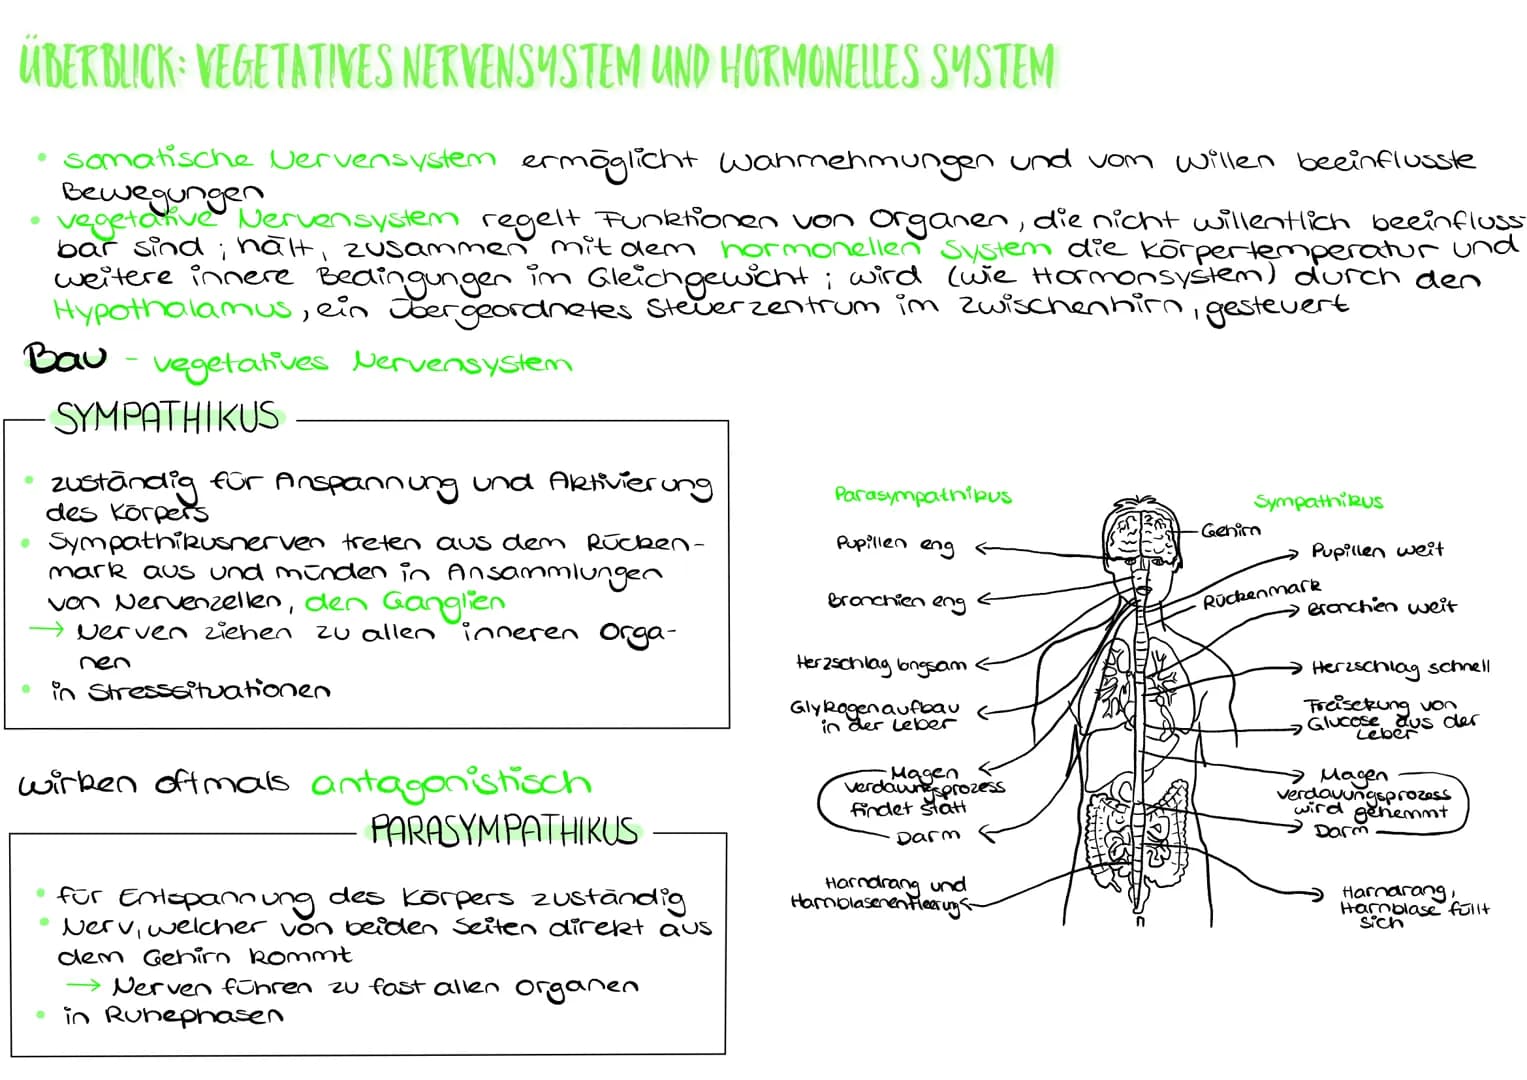 ÜBERBLICK: VEGETATIVES NERVENSYSTEM UND HORMONELLES SYSTEM
• somatische Nervensystem ermöglicht Wahrnehmungen und vom Willen beeinflusste
Bewegungen
• vegetative Nervensystem regelt Funktionen von Organen, die nicht willentlich beeinfluss-
bar sind; hält, zusammen mit dem hormonellen System die Körpertemperatur und
weitere innere Bedingungen im Gleichgewicht; wird (wie Hormonsystem) durch den
Hypothalamus, ein übergeordnetes Steuerzentrum im Zwischenhirn, gesteuert
Bau - vegetatives Nervensystem
SYMPATHIKUS
• zuständig für Anspannung und Aktivierung
des Körpers
• Sympathikusnerven treten aus dem Rücken-
mark aus und münden in Ansammlungen
von Nervenzellen, den Ganglien
→ Nerven ziehen zu allen inneren Orga-
nen
• in Stresssituationen
wirken oftmals antagonistisch
PARASYMPATHIKUS
• für Entspannung des Körpers zuständig
• Nerv, welcher von beiden Seiten direkt aus
dem Gehirn kommt
→ Nerven führen zu fast allen Organen
• in Ruhephasen
Parasympathikus
Pupillen eng
Bronchien eng
Herzschlag langsam
Glykogenaufbau
in der Leber
Magen
verdauungsprozess
findet statt
Darm
Harndrang und
Harnblasenentleerung
Sympathikus
Gehirn
Pupillen weit
Rückenmark
Bronchien weit
Herzschlag schnell
Freisetzung von
Glucose aus der
Leber
Magen
verdauungsprozess
wird gehemmt
Darm
Harndrang,
Harnblase füllt
sich